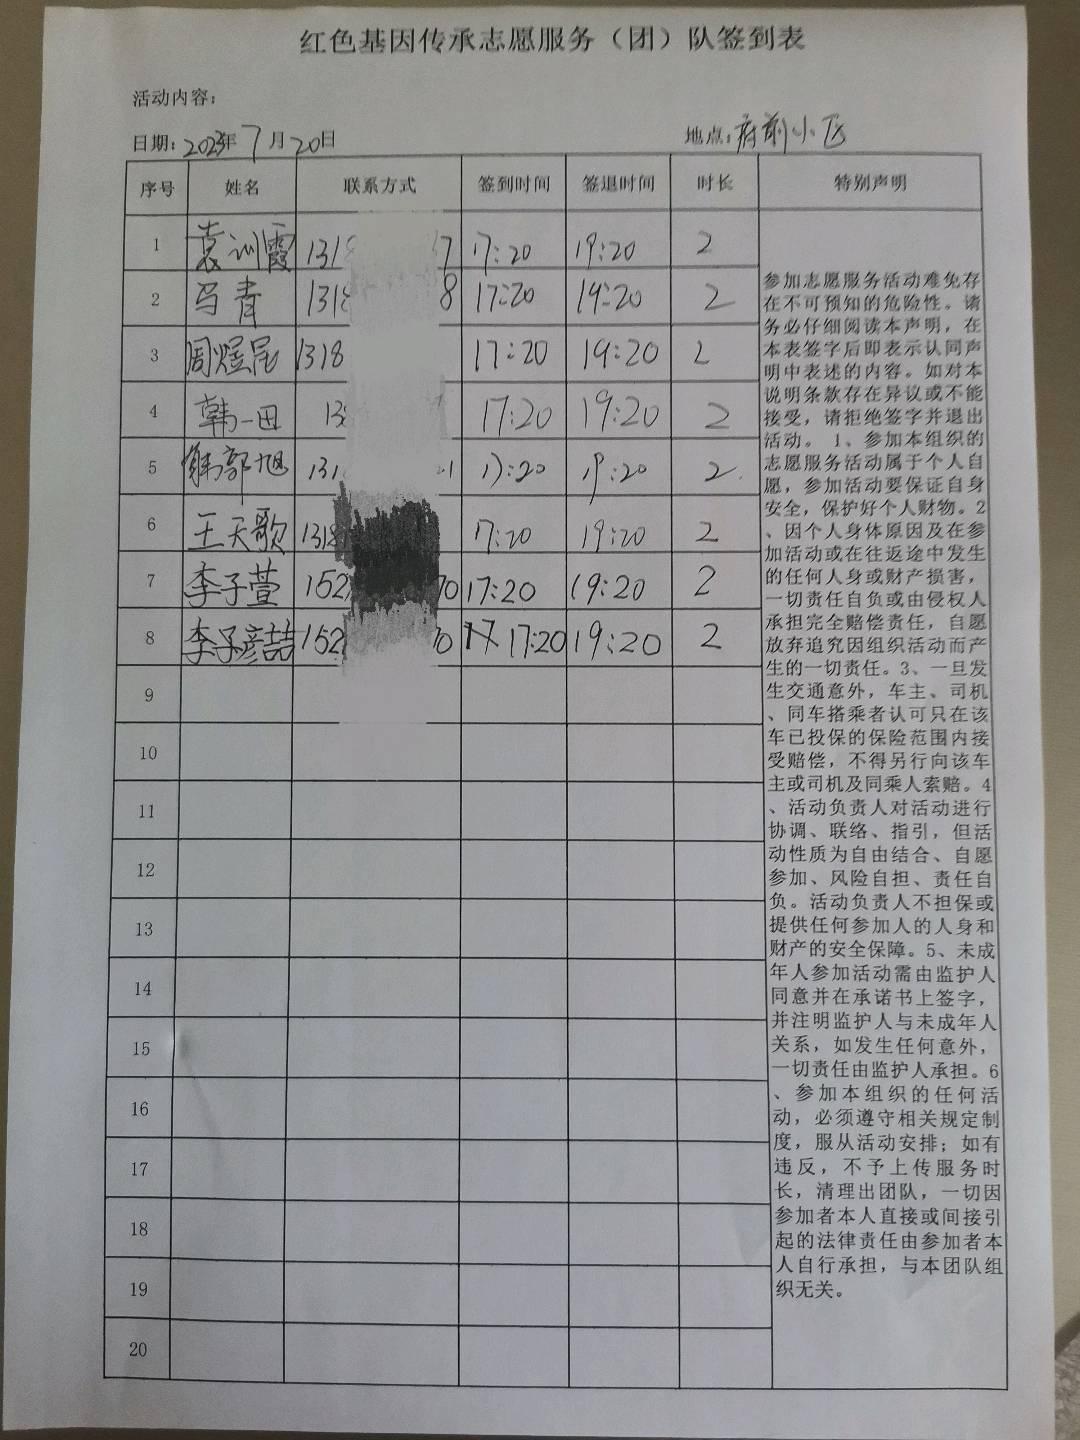 红色基因传承志愿服务（团）队签到表
活动内容：
日期：2023年7月20日 地点：府前小区
序号 姓名 联系方式 签到时间 签退时间 时长 特别声明
1 袁训霞 1318 7 17:20 19:20 2
2 马青 1318 8 17:20 19:20 2
3 周煜尧 1318 17:20 19:20 2
4 韩一田 13 17:20 19:20 2
5 韩郭旭 131 1 17:20 19:20 2
6 王天歌 1318 17:20 19:20 2
7 李子萱 152 70 17:20 19:20 2
8 李子彦喆 152 70 17:20 19:20 2
9
10
11
12
13
14
15
16
17
18
19
20
参加志愿服务活动难免存
在不可预知的危险性。请
务必仔细阅读本声明，在
本表签字后即表示认同声
明中表述的内容。如对本
说明条款存在异议或不能
接受，请拒绝签字并退出
活动。 1、参加本组织的
志愿服务活动属于个人自
愿，参加活动要保证自身
安全，保护好个人财物。2
、因个人身体原因及在参
加活动或在往返途中发生
的任何人身或财产损害，
一切责任自负或由侵权人
承担完全赔偿责任，自愿
放弃追究因组织活动而产
生的一切责任。3、一旦发
生交通意外，车主、司机
、同车搭乘者认可只在该
车已投保的保险范围内接
受赔偿，不得另行向该车
主或司机及同乘人索赔。4
、活动负责人对活动进行
协调、联络、指引，但活
动性质为自由结合、自愿
参加、风险自担、责任自
负。活动负责人不担保或
提供任何参加人的人身和
财产的安全保障。5、未成
年人参加活动需由监护人
同意并在承诺书上签字，
并注明监护人与未成年人
关系，如发生任何意外，
一切责任由监护人承担。6
、参加本组织的任何活
动，必须遵守相关规定制
度，服从活动安排；如有
违反，不予上传服务时
长，清理出团队，一切因
参加者本人直接或间接引
起的法律责任由参加者本
人自行承担，与本团队组
织无关。